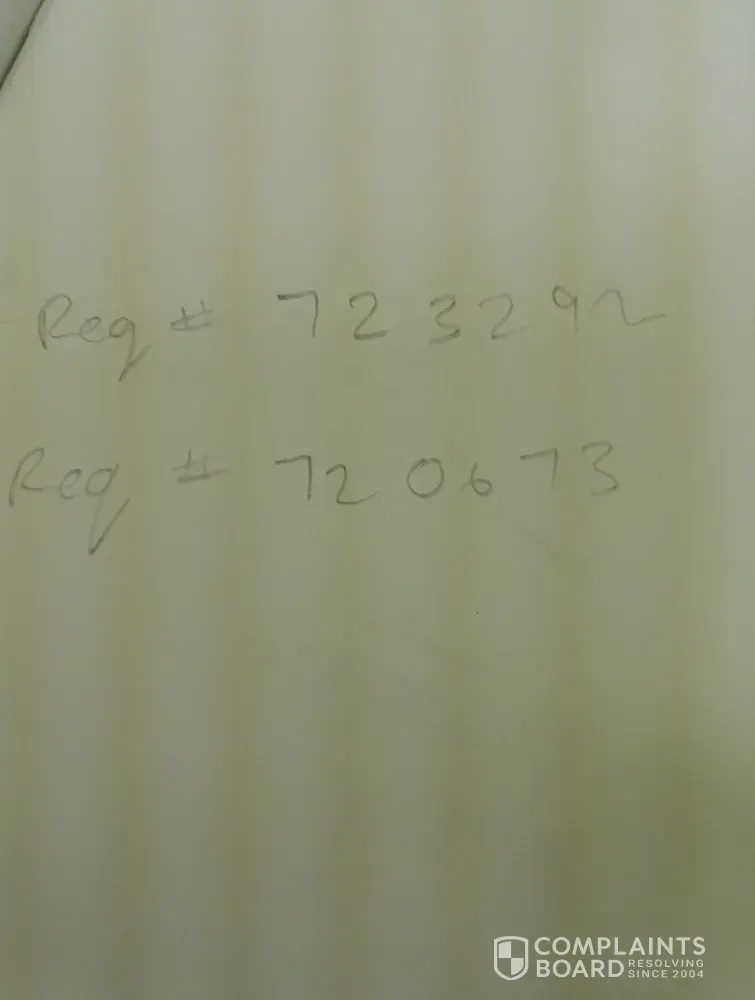 Req # 723292
Req # 720673
COMPLAINTS
BOARD RESOLVING
SINCE 2004